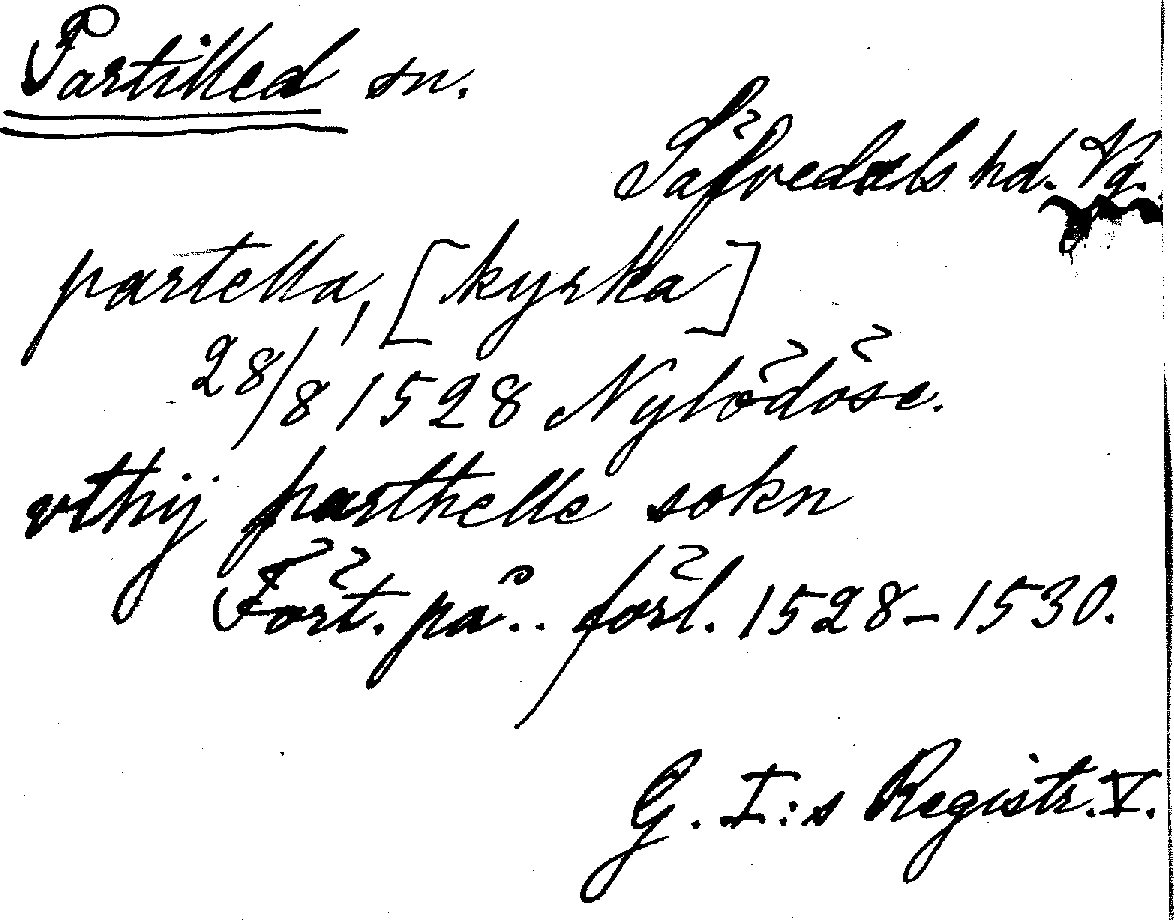 Partilled sn.
Säfvedals hd. Vg.
partella, [kyrka]
28/8 1528 Nylödöse.
vthij parthelle sokn
Fört. på.. förl. 1528-1530.
G. I:s Registr. V.